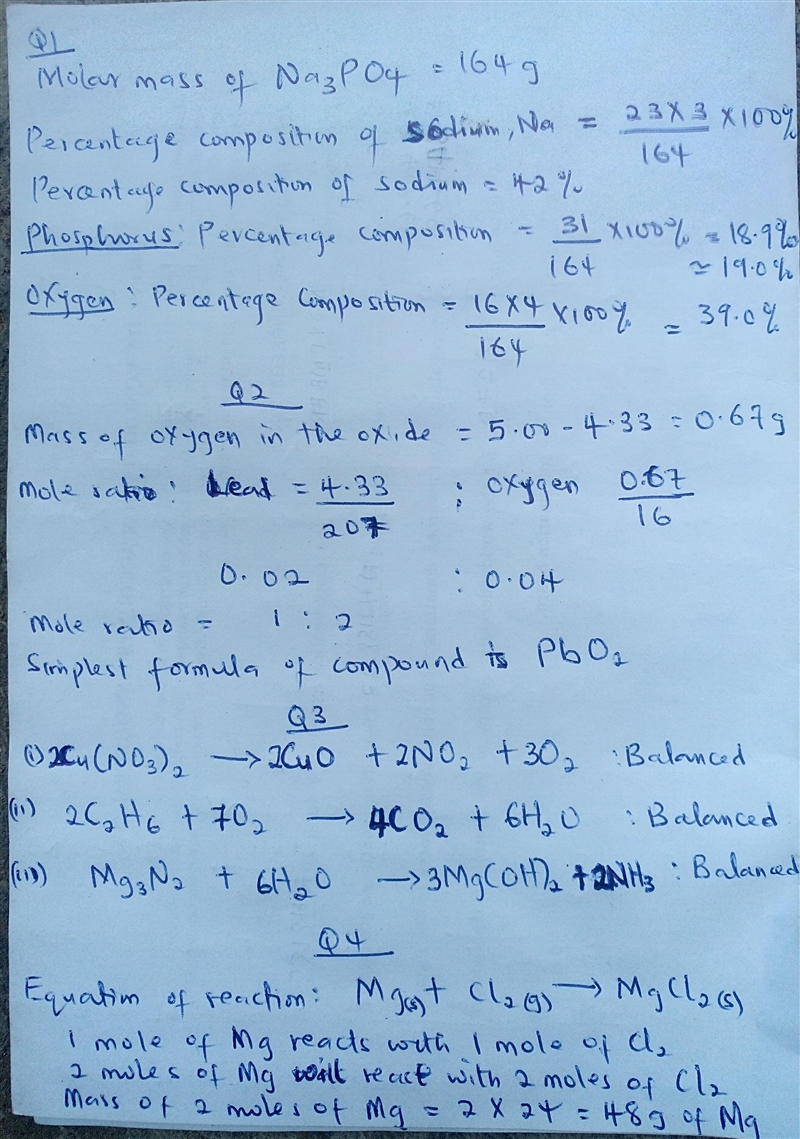 Q1
Molar mass of Na₃PO₄ = 164g
Percentage composition of Sodium, Na = 23 X 3 / 164 X 100%
Percentage composition of sodium = 42%
Phosphorus: Percentage composition = 31 / 164 X 100% = 18.9%
≈ 19.0%
Oxygen: Percentage Composition = 16 X 4 / 164 X 100% = 39.0%
Q2
Mass of oxygen in the oxide = 5.00 - 4.33 = 0.67g
Mole ratio: Lead = 4.33 / 207 : oxygen 0.67 / 16
0.02 : 0.04
Mole ratio = 1 : 2
Simplest formula of compound is PbO₂
Q3
(i) 2Cu(NO₃)₂ → 2CuO + 2NO₂ + 3O₂ : Balanced
(ii) 2C₂H₆ + 7O₂ → 4CO₂ + 6H₂O : Balanced
(iii) Mg₃N₂ + 6H₂O → 3Mg(OH)₂ + 2NH₃ : Balanced
Q4
Equation of reaction: Mg(s) + Cl₂(g) → MgCl₂(s)
1 mole of Mg reacts with 1 mole of Cl₂
2 moles of Mg will react with 2 moles of Cl₂
Mass of 2 moles of Mg = 2 X 24 = 48g of Mg